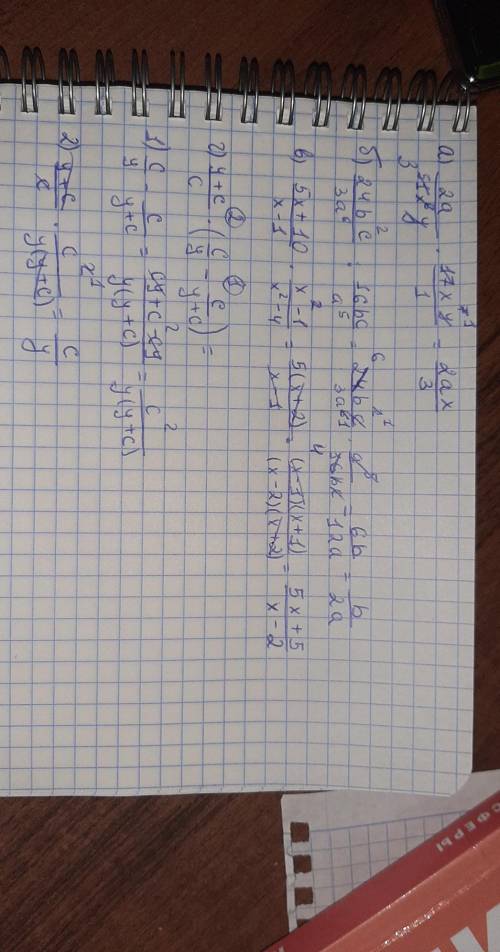 а) 2a/51x⁶y · 17x⁷y/1 = 2ax/3
б) 24b²c/3a⁶ : 16bc/a⁵ = 24b²c/3a⁶ · a⁵/16bc = 6b/12a = b/2a
в) 5x+10/x-1 · x²-1/x²-4 = 5(x+2)/x-1 · (x-1)(x+1)/(x-2)(x+2) = 5x+5/x-2
г) y+c/c · (c/y - c/y+c) =
1) c/y - c/y+c = cy+c²-cy/y(y+c) = c²/y(y+c)
2) y+c/c · c²/y(y+c) = c/y
СФЕРЫ